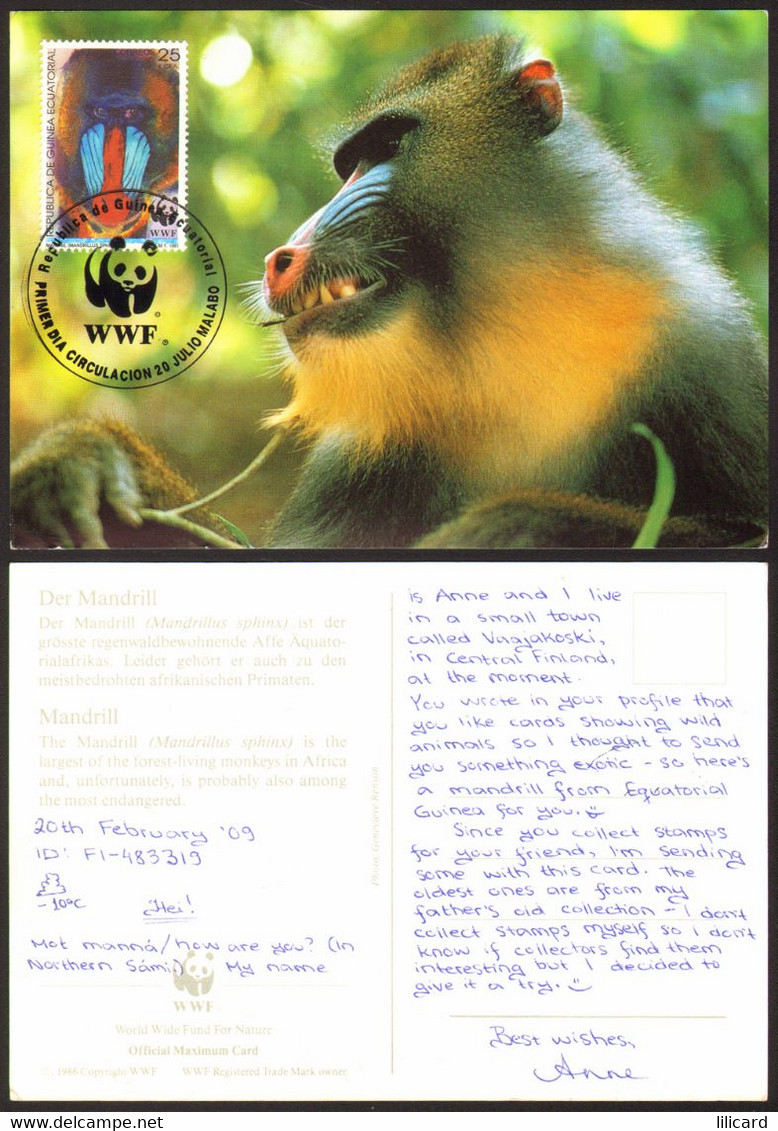 CORREOS 25
REPUBLICA DE GUINEA ECUATORIAL
WWF
Republica de Guinea Ecuatorial
WWF
PRIMER DIA CIRCULACION 20 JULIO MALABO
Der Mandrill
Der Mandrill (Mandrillus sphinx) ist der
grösste regenwaldbewohnende Affe Äquato-
rialafrikas. Leider gehört er auch zu den
meistbedrohten afrikanischen Primaten.
Mandrill
The Mandrill (Mandrillus sphinx) is the
largest of the forest-living monkeys in Africa
and, unfortunately, is probably also among
the most endangered.
20th February '09
ID: FI-483319
-10°C
Hei!
Mot manná/how are you? (In
Northern Sámi) My name
WWF
World Wide Fund For Nature
Official Maximum Card
© 1986 Copyright WWF WWF Registered Trade Mark owner
is Anne and I live
in a small town
called Vaajakoski,
in Central Finland,
at the moment.
You wrote in your profile that
you like cards showing wild
animals so I thought to send
you something exotic - so here's
a mandrill from Equatorial
Guinea for you.
Since you collect stamps
for your friend, I'm sending
some with this card. The
oldest ones are from my
father's old collection - I don't
collect stamps myself so I don't
know if collectors find them
interesting but I decided to
give it a try.
Best wishes,
Anne
lilicard